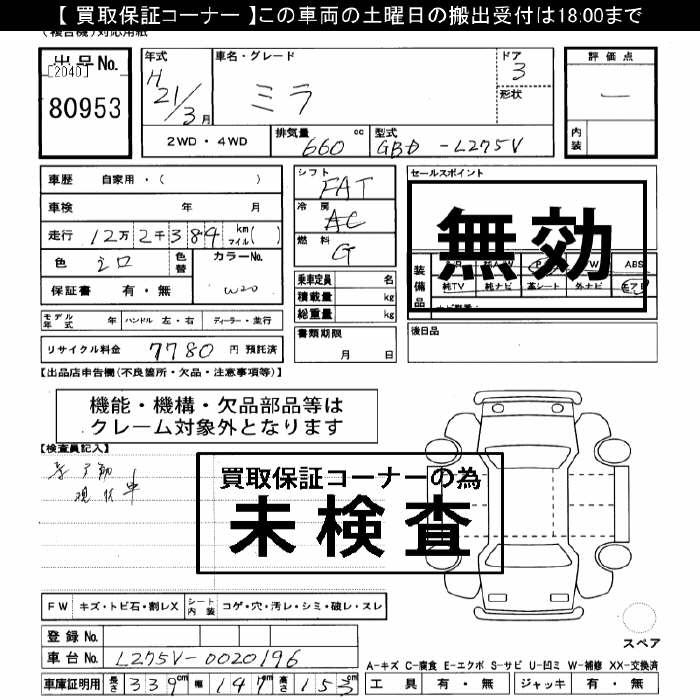 【 買取保証コーナー 】この車両の土曜日の搬出受付は18:00まで
(複合機)対応用紙
出品No.
[2040]
80953
年式
H 21/3月
車名・グレード
ミラ
ドア
3
形状
評価点
一
内装
2WD・4WD
排気量
660 cc
型式
GBD-L275V
車歴 自家用・( )
車検 年 月
走行 12万2千384 km マイル( )
色 シロ
色替
カラーNo.
W20
保証書 有・無
シフト
FAT
冷房
AC
燃料
G
乗車定員 名
積載量 kg
総重量 kg
書類期限
月 日
セールスポイント
無効
装備品
ABS
純TV 純ナビ 革シート 外ナビ
後日品
モデル年式 年 ハンドル 左・右 ディーラー・並行
リサイクル料金 7780 円 預託済
【出品店申告欄(不良箇所・欠品・注意事項等)】
機能・機構・欠品部品等は
クレーム対象外となります
【検査員記入】
現状車
買取保証コーナーの為
未検査
FW キズ・トビ石・割レX シート内装 コゲ・穴・汚レ・シミ・破レ・スレ
登録No.
車台No. L275V-0020196
車庫証明用 長さ 339cm 幅 147cm 高さ 153cm
スペア
A-キズ C-腐食 E-エクボ S-サビ U-凹ミ W-補修 XX-交換済
工具 有・無 ジャッキ 有・無